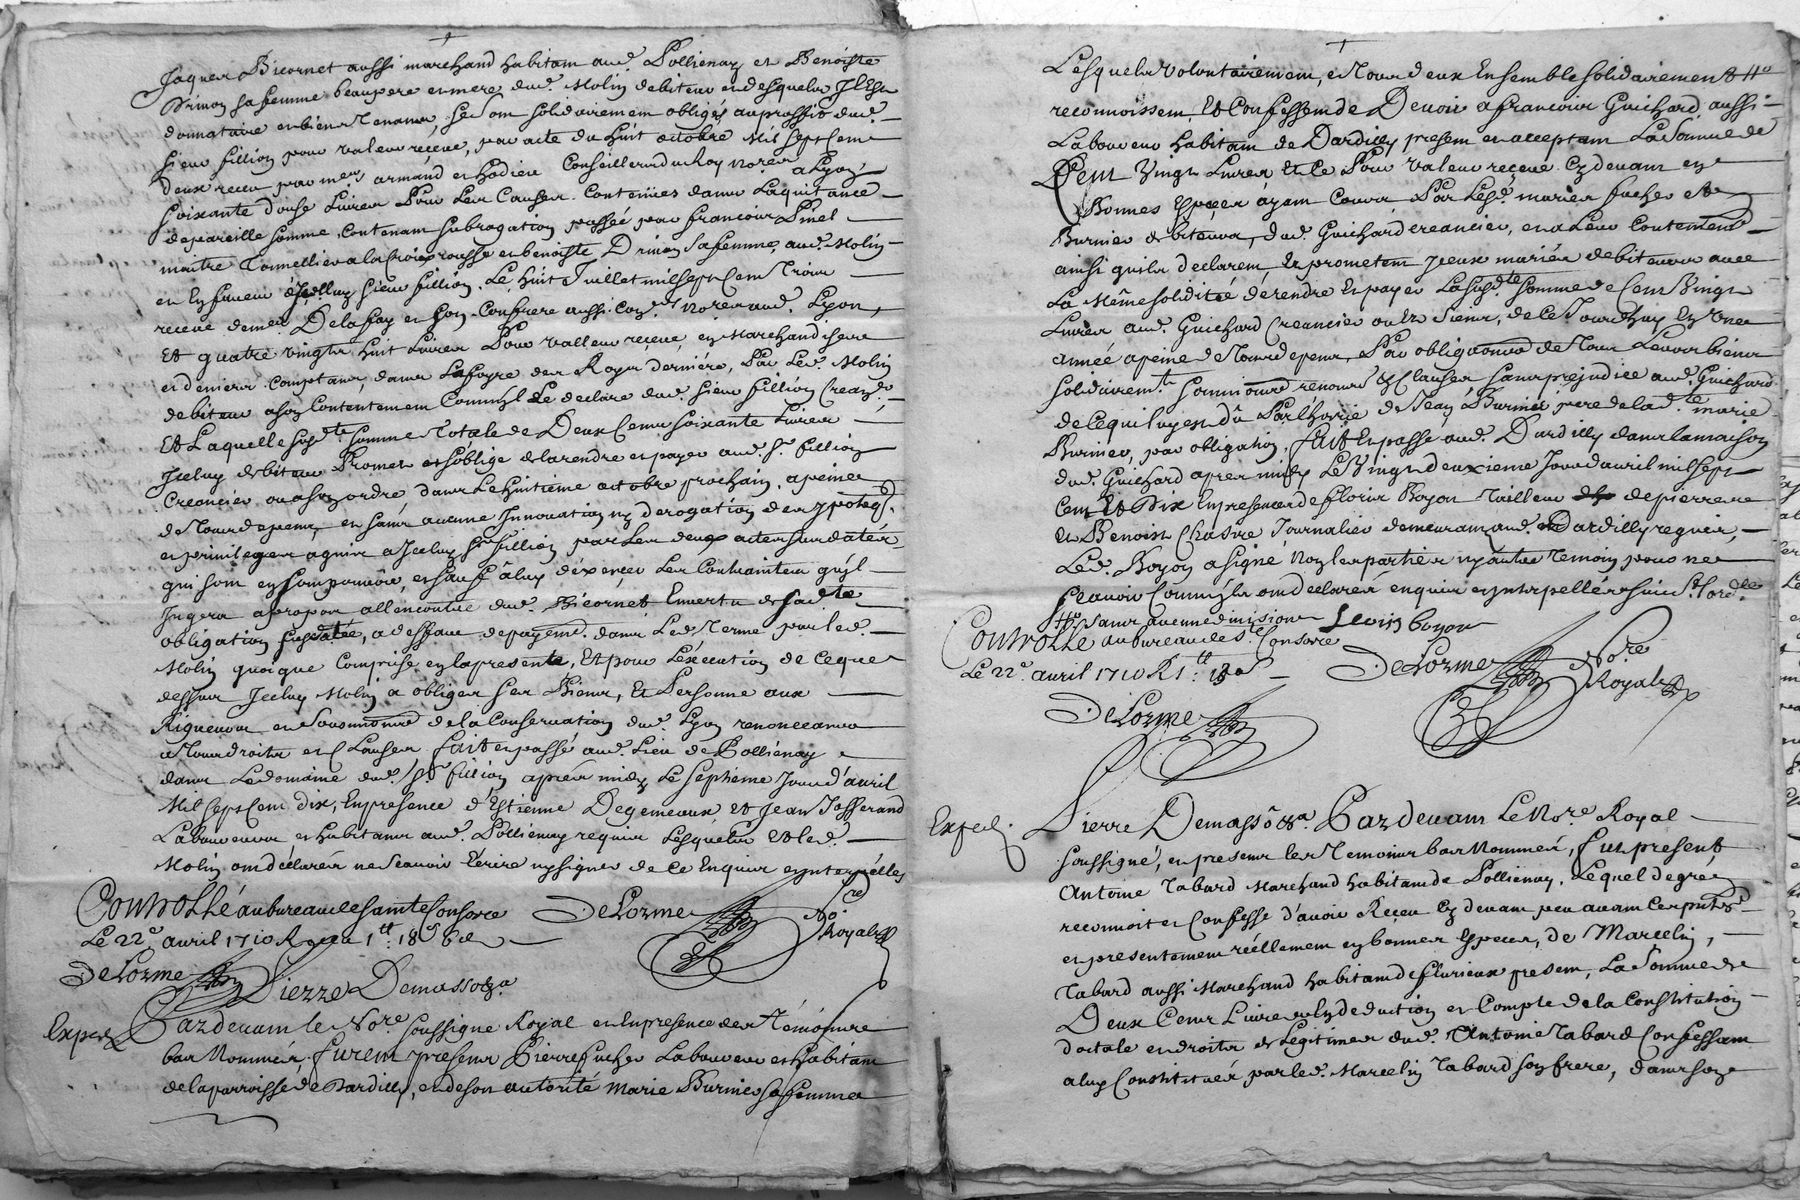 Jaques Bicornet aussi marchand habitant aud. Pollienay et Benoiste
Drivon sa femme beaupere et mere dud. Molin debiteur et desquels Il Est
donnataire et bien Tenant, se sont solidairement obligés au proffit dud.
sieur fillion pour valeur receue, par acte du huit octobre Mil sept cent
deux receu par mes armand et hodieu Conseillers du Roy no.res a Lyon
soixante douse Livres Pour Les Causes Contenües dans La quitance
de pareille somme, contenant subrogation passée par francois Pinet
maitre Tonnellier a la Croix rousse et benoiste Drivon sa femme, aud. Molin
et En faveur d'Icelluy sieur fillion, Le huit Juillet mil sept cent Trois
receue de me. Delafay et son Confrere aussi con.rs no.res aud. Lyon,
Et quatre vingts huit Livres Pour valleur receue, en Marchandises
et deniers comptans, dans La foyre des Roys derniere, Par Led. Molin
debiteur a son Contentement Comm'yl Le declare dud. sieur fillion Crean.er
Et Laquelle susd.te somme Totale de Deux Cents soixante Livres
Iceluy debiteur Promet et s'oblige de la rendre et payer aud. Sr. fillion
Creancier ou a son ordre dans Le huitieme octobre prochain, a peine
de Tous depens, et sans aucune Innovation ny derogation des ypoteq.
et privileges aquis a Iceluy Sr fillion par Les deux actes susdatés
qui sont en son pouvoir, et sauf a luy d'exercer Les Contraintes qu'jl
Jugera a propos allencontre dud. Bicornet En vertu de sad.te
obligation susdatée, a deffaut de payem.t dans Led. Terme par led.
Molin quoique Comprise en la presente, Et pour L'execution de ce que
dessus Iceluy Molin a obliger ses Biens, Et Personne aux
Rigueurs et sousmissions de la Conservation dud. Lyon renonceant
a Tous droits et Clauses fait et passé aud. Lieu de Pollienay
dans Le domaine dud. Sr. fillion apres midy Le septieme Jour d'avril
Mil sept cent dix, En presence d'Estienne Degeneveux Et Jean Josserand
Laboureurs et habitans aud. Pollienay requis Lesquels et led.
Molin ont déclarés ne scavoir Ecrire ny signer de ce Enquis et interpellés
Controllé au bureau de sainte Consorce
Le 22e avril 1710 Receu 1tt 18s 8d
DeLorme No.re Royal
DeLorme
Pierre Demasso &a
Exped.
Pardevant le No.re soussigné Royal et En presence des Témoins
bas Nommés furent presens Pierre fucher Laboureur et habitant
de la parroisse de Dardilly, et de son autorité Marie Burnier sa femme
Lesquels volontairement, et Tous deux Ensemble solidairement #
reconnoissent Et Confessent de Devoir a francois Guichard aussi
Laboureur habitant de Dardilly present et acceptant La Somme de
Cent Vingt Livres Et ce Pour valeur receue Cy devant en
Bonnes Especes ayant Cours Par Lesd. mariés fucher et
Burnier debiteurs, dud. Guichard creancier, et a Leur Contentem.t
ainsi qu'ils declarent, Et prometent Iceux mariés debiteurs avec
La Même solidité de rendre Et payer La susd.te somme de Cent Vingt
Livres aud. Guichard Creancier ou Es siens, de Ce Jourd'huy En Une
année a peine de Tous depens, Par obligations de Tous Leurs biens
solidairem.t soumissions renonces & Clauses sans prejudice aud. Guichard
de ce qui luy est dû Par l'hoirie de Jean Burnier pere de lad.te marie
Burnier, par obligation, fait Et passé aud. Dardilly dans la maison
dud. Guichard apres midy Le Vingt deuxieme Jour d'avril mil sept
Cent Et Dix En presence de florir Boyon Tailleur de pierre
Et Benoist Chasve Journalier demeurant aud. Dardilly requis,
Led. Boyon a signé Non les parties ny l'autre Temoin pour ne
scavoir Comm'yls ont declarés enquis et interpellés suiv.t l'ord.ce
# sans aucune division
Controllé au bureau de Ste Consorce
Le 22e avril 1710 R 1tt 18s
DeLorme No.re Royal
DeLorme
Exped.
Pierre Demasso &a. Pardevant Le No.re Royal
soussigné, et presens les Temoins bas Nommés, fut present
Antoine Tabard Marchand habitant de Pollienay, Lequel de gré
reconnoit et Confesse d'avoir Receu Cy devant peu avant Ces p.ntes
et presentement réellement en bonnes Especes, de Marcelin,
Tabard aussi Marchand habitant de fleurieux present, La Somme de
Deux Cents Livres En deduction et Compte de la Constitution
dottale et droits de Legitimes dud. Antoine Tabard Confessant
a luy Constituer par led. Marcelin Tabard son frere, dans son